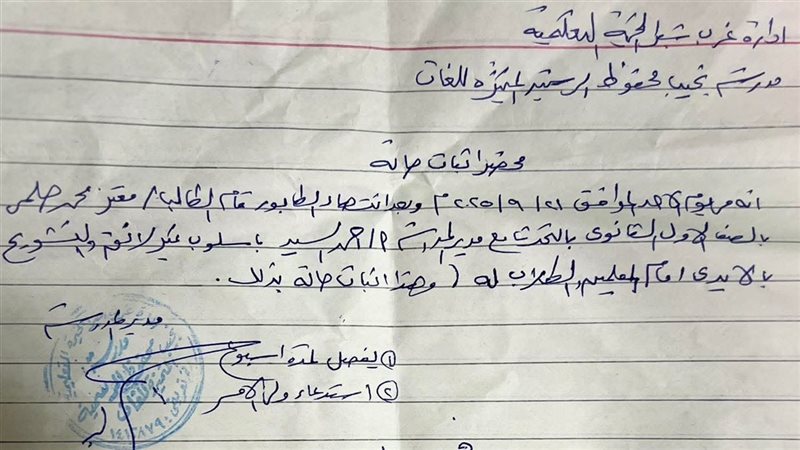 ادارة غرب شبرا الخيمة التعليمية
مدرسة نجيب محفوظ الرسمية المتميزة للغات
محضر اثبات حالة
انه فى يوم الاحد الموافق ٢١/ ٩/ ٢٠٢٥م وبعد انتهاء الطابور قام الطالب/ معتز محمد حلمى
بالصف الاول الثانوى بالتحدث مع مدير المدرسة أ/ احمد السيد باسلوب غير لائق والتشويح
بالايدى امام المعلمين والطلاب له ( وهذا اثبات حالة بذلك .
مدير المدرسة
① يفصل لمدة اسبوع
② استدعاء ولى الامر